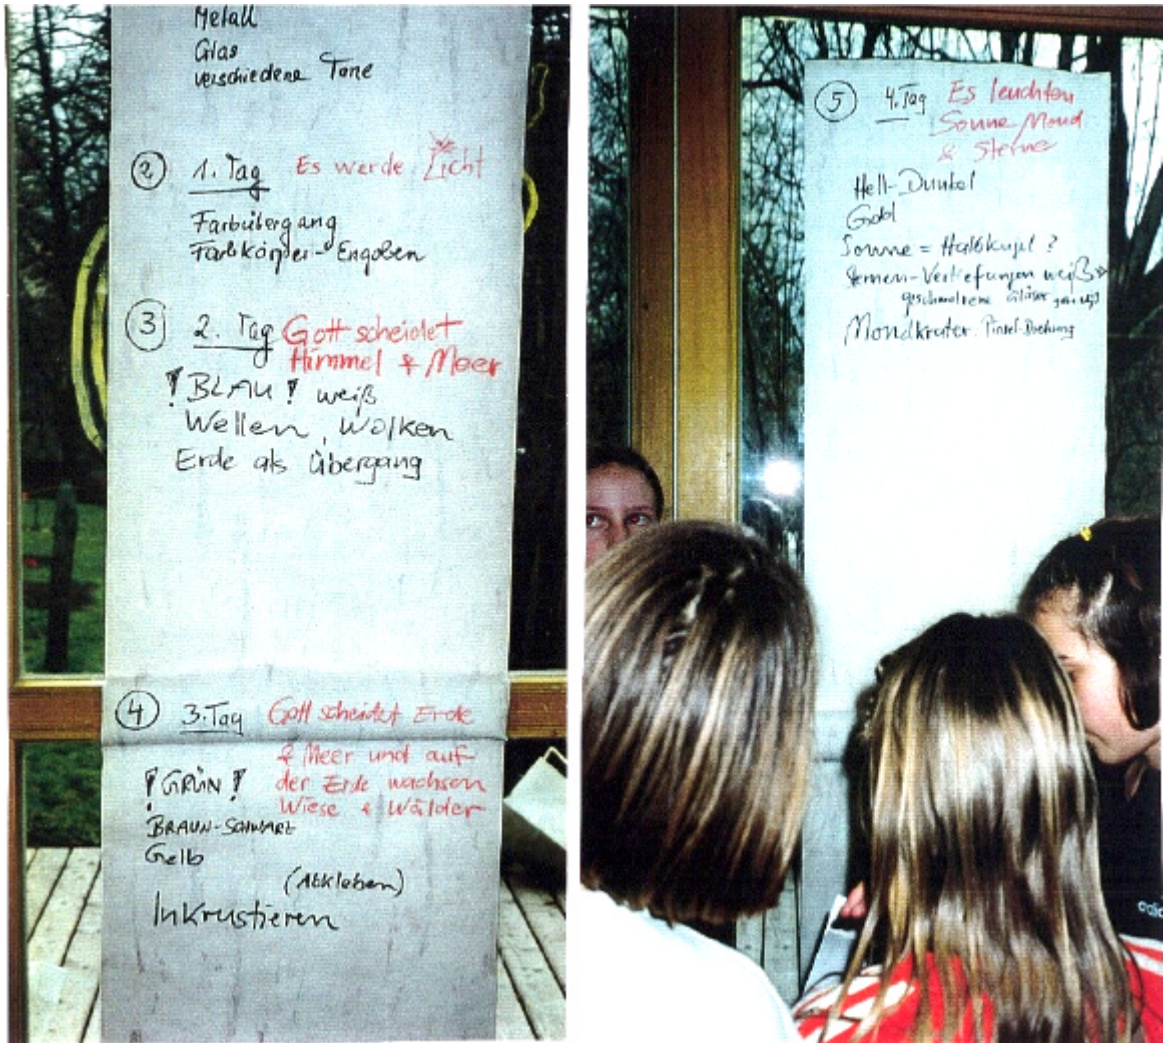 Metall
Glas
verschiedene Töne
② 1. Tag Es werde Licht
Farbübergang
Farbkörper-Engoben
③ 2. Tag Gott scheidet
Himmel & Meer
! BLAU ! weiß
Wellen, Wolken
Erde als Übergang
④ 3. Tag Gott scheidet Erde
& Meer und auf
der Erde wachsen
Wiese & Wälder
! GRÜN !
BRAUN-SCHWARZ
Gelb
(Abkleben)
Inkrustieren
⑤ 4. Tag Es leuchten
Sonne Mond
& Sterne
Hell-Dunkel
Gold
Sonne = Halbkugel ?
Sternen-Vertiefungen weiß
geschmolzene Gläser
Mondkrater. Pinsel-Drehung